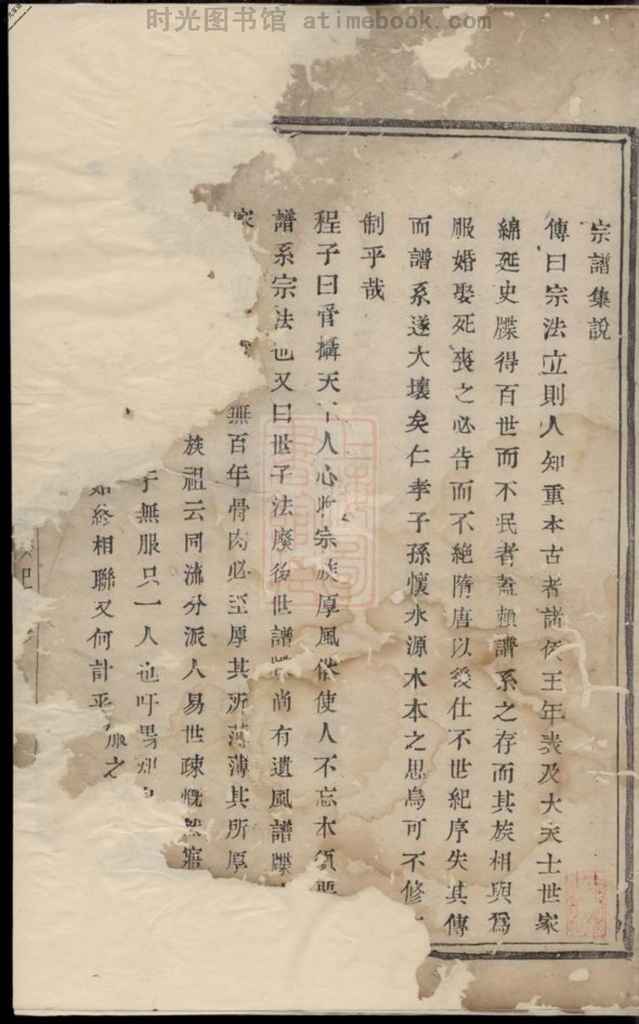 时光图书馆 atimebook.com
宗譜集說
傳曰宗法立則人知重本古者諸侯王年表及大夫士世家
綿延史牒得百世而不民者蓋頼譜系之存而其族相與爲
服婚娶死喪之必告而不絕隋唐以後仕不世紀序失其傳
而譜系遂大壞矣仁孝子孫懷水源木本之思烏可不修
制乎哉
程子曰管攝天下人心收宗族厚風俗使人不忘本須
譜系宗法也又曰世子法廢後世譜牒尚有遺風譜牒
家 無百年骨肉必至厚其所薄薄其所厚
族祖云同流分派人易世疎慨然寤
于無服只一人也吁
始終相聯又何計乎服之